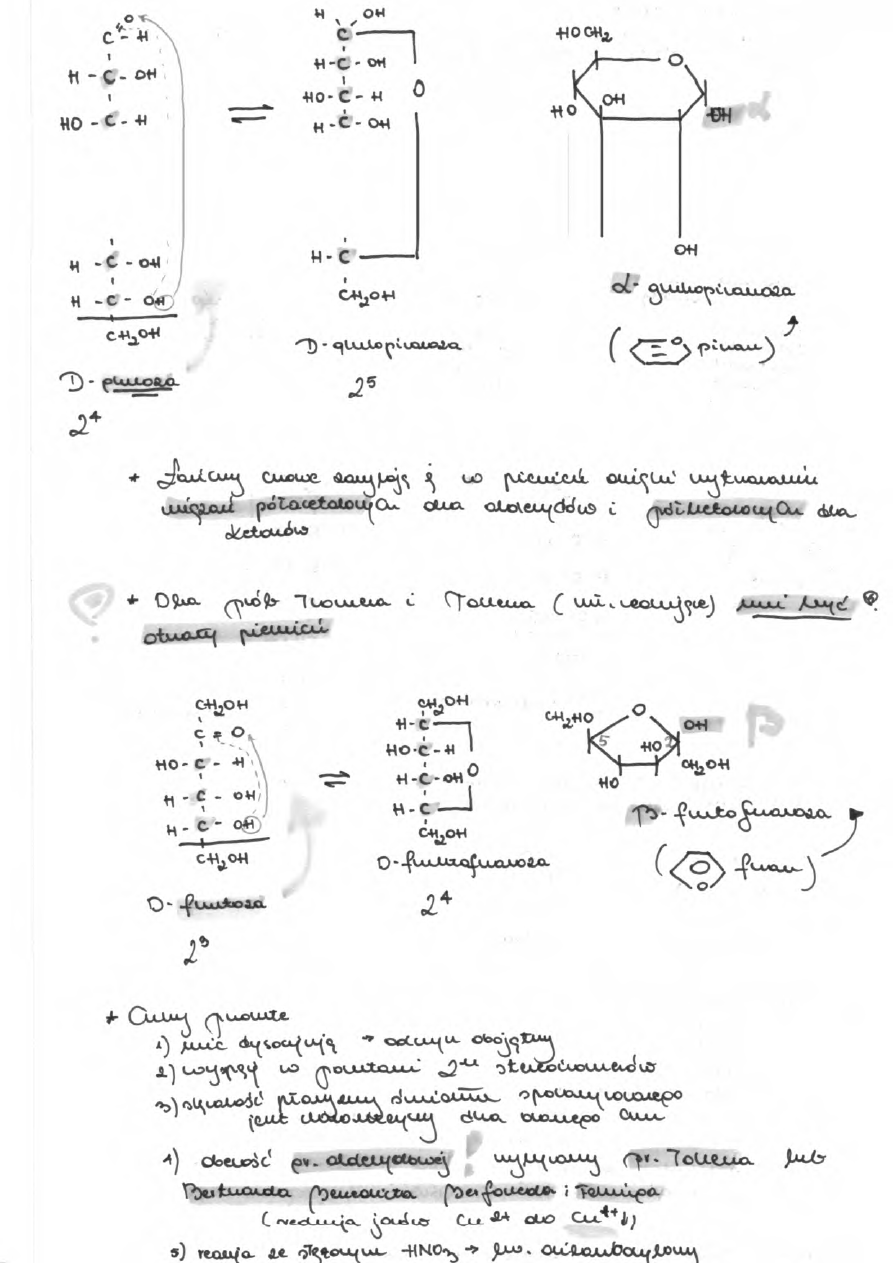 C=O H
H - C - OH
HO - C - H
H - C - OH
H - C - OH
CH₂OH
D- glukoza
2⁴
H OH
C
H - C - OH
HO - C - H
O
H - C - OH
H - C
CH₂OH
D- glukopiranoza
2⁵
HOCH₂
O
HO OH OH α
OH
α- glukopiranoza
( O piran )
* Łańcuchy cukrowe zamykają się w pierścień dzięki wytwarzaniu
wiązań półacetalowych dla aldehydów i półketalowych dla
ketonów
* Dla prób Trommera i Tollensa ( ) musi być
otwarty pierścień
CH₂OH
C = O
HO - C - H
H - C - OH
H - C - OH
CH₂OH
D- fruktoza
2³
CH₂OH
H - C
HO - C - H
H - C - OH O
H - C
CH₂OH
D- fruktofuranoza
2⁴
CH₂HO O OH β
5 HO 2
HO CH₂OH
β- fruktofuranoza
( O furan )
* Cukry proste
1) nie dysocjują → odczyn obojętny
2) występują w postaci 2ⁿ stereoizomerów
3) płaszczyzny światła spolaryzowanego
jest dla danego cukru
4) obecność gr. aldehydowej ! wykrywamy pr. Tollensa lub
Bertranda Benedicta Barfoeda i Fehlinga
( redukcja jonów Cu²⁺ do Cu⁺↓)
5) reakcja ze stężonym HNO₃ → kw.